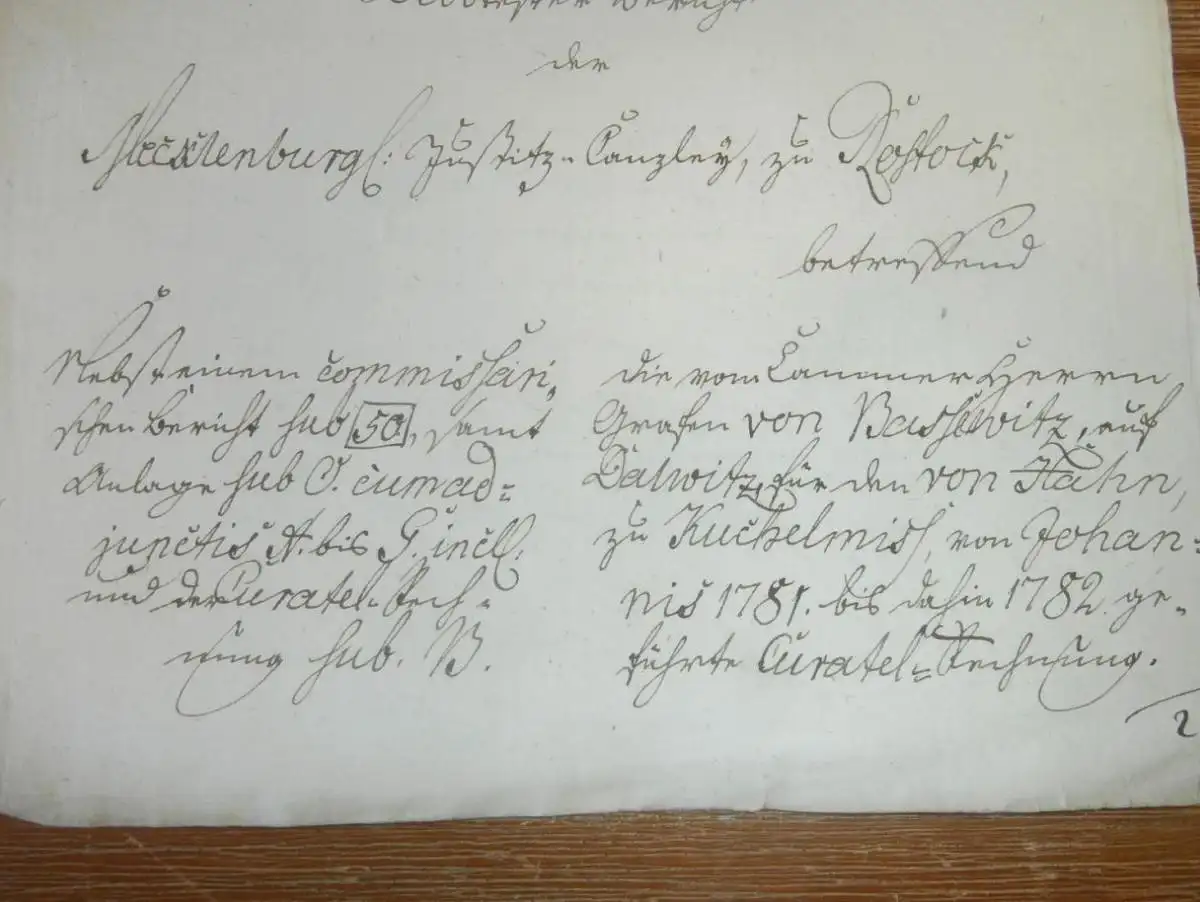 Bericht
der
Mecklenburgl: Justitz-Canzley, zu Rostock,
betreffend
Nebst einem commissari-
schen Bericht sub 50, samt
Anlage sub O. cum ad=
junctis A. bis G. incl.
und der Curatel-Rech-
nung sub. B.
die vom Cammer Herrn
Grafen von Bassewitz, auf
Dalwitz, für den von Hahn,
zu Kuchelmiss, von Johan=
nis 1781. bis dahin 1782. ge-
führte Curatel=Rechnung.
2